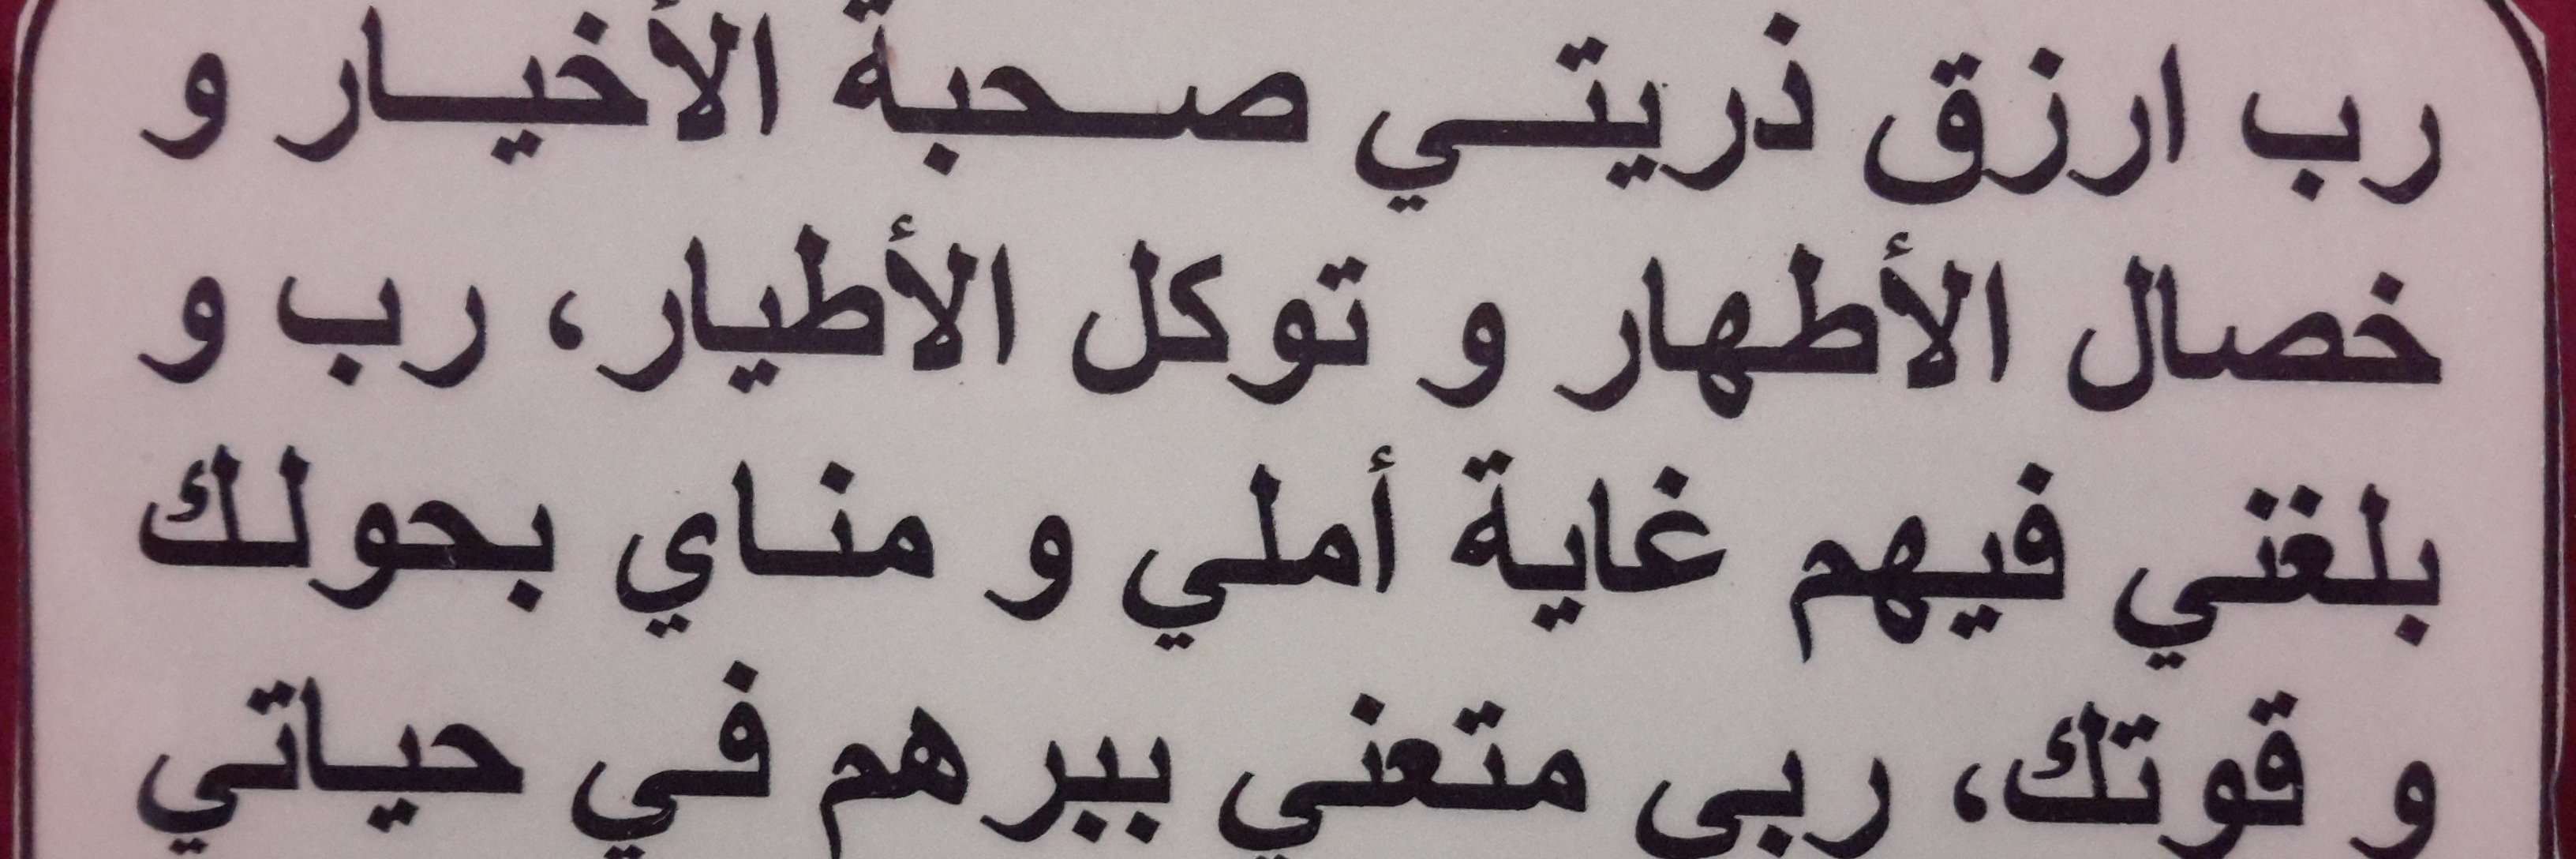 رب ارزق ذريتي صحبة الأخيار و
خصال الأطهار و توكل الأطيار، رب و
بلغني فيهم غاية أملي و مناي بحولك
و قوتك، ربي متعني ببرهم في حياتي